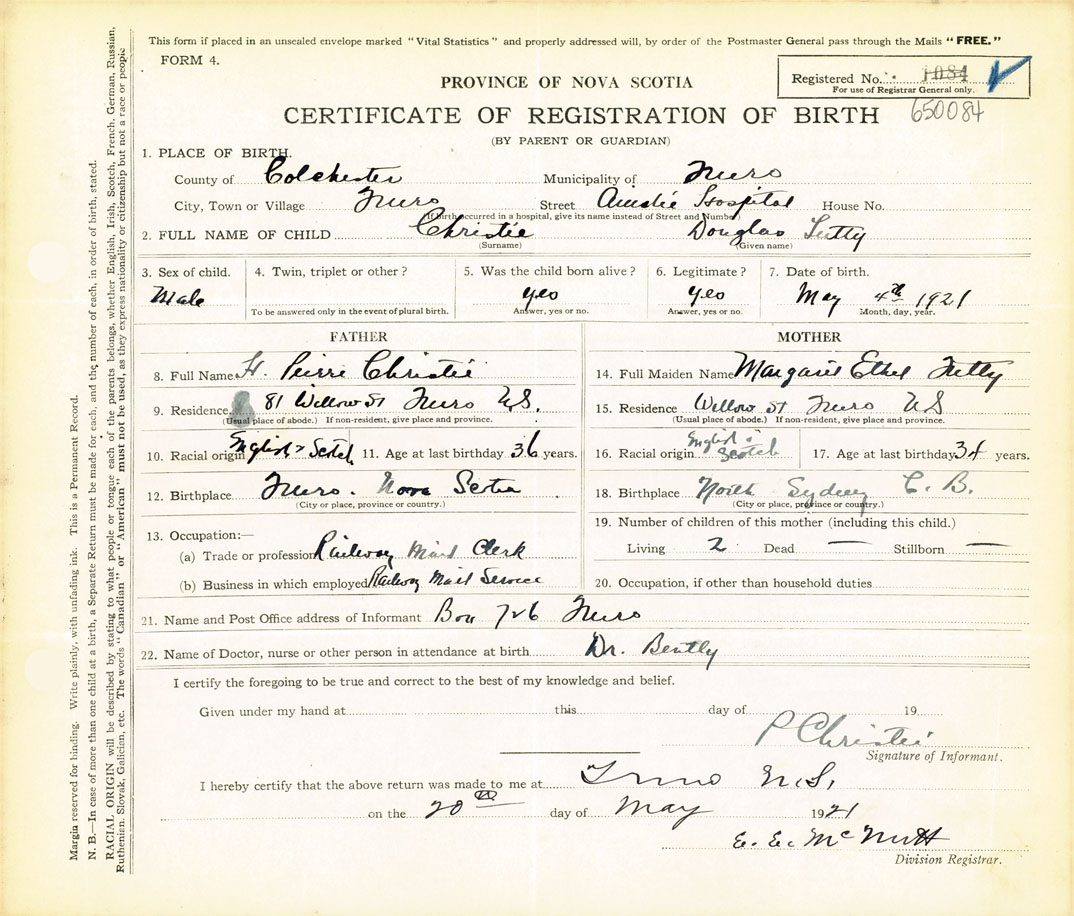 This form if placed in an unsealed envelope marked "Vital Statistics" and properly addressed will, by order of the Postmaster General pass through the Mails "FREE."
FORM 4.
Registered No. 1084
For use of Registrar General only.
650084
PROVINCE OF NOVA SCOTIA
CERTIFICATE OF REGISTRATION OF BIRTH
(BY PARENT OR GUARDIAN)
1. PLACE OF BIRTH.
County of Colchester Municipality of Truro
City, Town or Village Truro Street Ainslie Hospital House No.
(If birth occurred in a hospital, give its name instead of Street and Number)
2. FULL NAME OF CHILD Christie Douglas Tutty
(Surname) (Given name)
3. Sex of child. Male
4. Twin, triplet or other?
To be answered only in the event of plural birth.
5. Was the child born alive? yes
Answer, yes or no.
6. Legitimate? yes
Answer, yes or no.
7. Date of birth. May 4th 1921
Month, day, year.
FATHER
8. Full Name H. Peirre Christie
9. Residence 81 Willow St Truro N.S.
(Usual place of abode.) If non-resident, give place and province.
10. Racial origin English & Scotch 11. Age at last birthday 36 years.
12. Birthplace Truro. Nova Scotia
(City or place, province or country.)
13. Occupation:—
(a) Trade or profession Railway Mail Clerk
(b) Business in which employed Railway Mail Service
MOTHER
14. Full Maiden Name Margaret Ethel Tutty
15. Residence Willow St Truro NS
(Usual place of abode.) If non-resident, give place and province.
16. Racial origin English & Scotch 17. Age at last birthday 34 years.
18. Birthplace North Sydney C. B.
(City or place, province or country.)
19. Number of children of this mother (including this child.)
Living 2 Dead — Stillborn —
20. Occupation, if other than household duties
21. Name and Post Office address of Informant Box 726 Truro
22. Name of Doctor, nurse or other person in attendance at birth Dr. Bently
I certify the foregoing to be true and correct to the best of my knowledge and belief.
Given under my hand at this day of 19
P Christie
Signature of Informant.
I hereby certify that the above return was made to me at Truro N.S.
on the 20th day of May 1921
E. E. McNutt
Division Registrar.
Margin reserved for binding. Write plainly, with unfading ink. This is a Permanent Record.
N. B.—In case of more than one child at a birth, a Separate Return must be made for each, and the number of each, in order of birth, stated.
RACIAL ORIGIN will be described by stating to what people or tongue each of the parents belongs, whether English, Irish, Scotch, French, German, Russian,
Ruthenian, Slovak, Galician, etc. The words "Canadian" or "American" must not be used, as they express nationality or citizenship but not a race or people